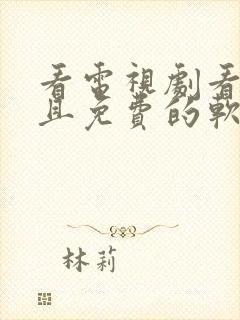 看電視劇看
且免費的軟
林莉